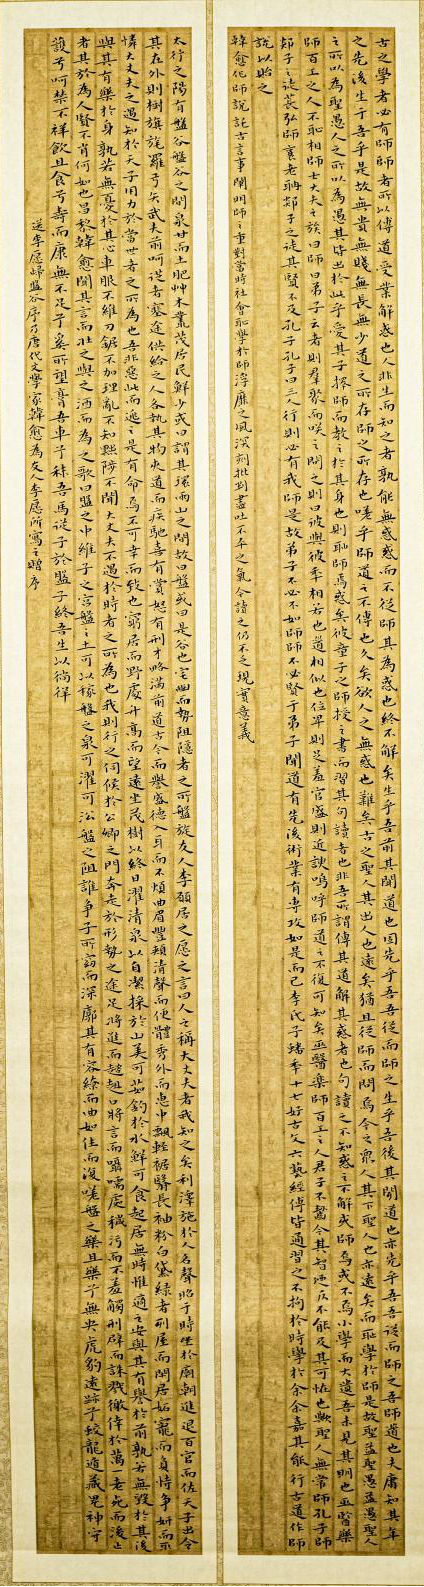 古之學者必有師師者所以傳道受業解惑也人非生而知之者孰能無惑惑而不從師其為惑也終不解矣生乎吾前其聞道也固先乎吾吾從而師之生乎吾後其聞道也亦先乎吾吾從而師之吾師道也夫庸知其年
之先後生于吾乎是故無貴無賤無長無少道之所存師之所存也嗟乎師道之不傳也久矣欲人之無惑也難矣古之聖人其出人也遠矣猶且從師而問焉今之眾人其下聖人也亦遠矣而恥學於師是故聖益聖愚益愚聖人
之所以為聖愚人之所以為愚其皆出於此乎愛其子擇師而教之於其身也則恥師焉惑矣彼童子之師授之書而習其句讀者也非吾所謂傳其道解其惑者也句讀之不知惑之不解或師焉或不焉小學而大遺吾未見其明也巫醫樂
師百工之人不恥相師士大夫之族曰師曰弟子云者則群聚而笑之問之則曰彼與彼年相若也道相似也位卑則足羞官盛則近諛嗚呼師道之不復可知矣巫醫樂師百工之人君子不齒今其智乃反不能及其可怪也歟聖人無常師孔子師
郯子萇弘師襄老聃郯子之徒其賢不及孔子孔子曰三人行則必有我師是故弟子不必不如師師不必賢于弟子聞道有先後術業有專攻如是而已李氏子蟠年十七好古文六藝經傳皆通習之不拘於時學於余余嘉其能行古道作師
說以貽之
韓愈作師說託古言事闡明師之重對當時社會恥學於師浮靡之風深刻批判盡吐不平之氣今讀之仍不乏現實意義
太行之陽有盤谷盤谷之間泉甘而土肥艸木叢茂居民鮮少或曰謂其環兩山之間故曰盤或曰是谷也宅幽而勢阻隱者之所盤旋友人李愿居之愿之言曰人之稱大丈夫者我知之矣利澤施於人名聲昭于時坐於廟朝進退百官而佐天子出令
其在外則樹旗旄羅弓矢武夫前呵從者塞途供給之人各執其物夾道而疾馳喜有賞怒有刑才畯滿前道古今而譽盛德入耳而不煩曲眉豐頰清聲而便體秀外而惠中飄輕裾翳長袖粉白黛綠者列屋而閒居妒寵而負恃爭妍而取
憐大丈夫之遇知於天子用力於當世者之所為也吾非惡此而逃之是有命焉不可幸而致也窮居而野處升高而望遠坐茂樹以終日濯清泉以自潔採於山美可茹釣於水鮮可食起居無時惟適之安與其有譽於前孰若無毀於其後
與其有樂於身孰若無憂於其心車服不維刀鋸不加理亂不知黜陟不聞大丈夫不遇於時者之所為也我則行之伺候於公卿之門奔走於形勢之途足將進而趑趄口將言而囁嚅處穢污而不羞觸刑辟而誅戮徼倖於萬一老死而後止
者其於為人賢不肖何如也昌黎韓愈聞其言而壯之與之酒而為之歌曰盤之中維子之宮盤之土可以稼盤之泉可濯可沿盤之阻誰爭子所窈而深廓其有容繚而曲如往而復嗟盤之樂且樂兮無央虎豹遠跡兮蛟龍遁藏鬼神守
護兮呵禁不祥飲且食兮壽而康無不足兮奚所望膏吾車兮秣吾馬從子於盤兮終吾生以徜徉
送李愿歸盤谷序乃唐代文學家韓愈為友人李愿所寫之贈序